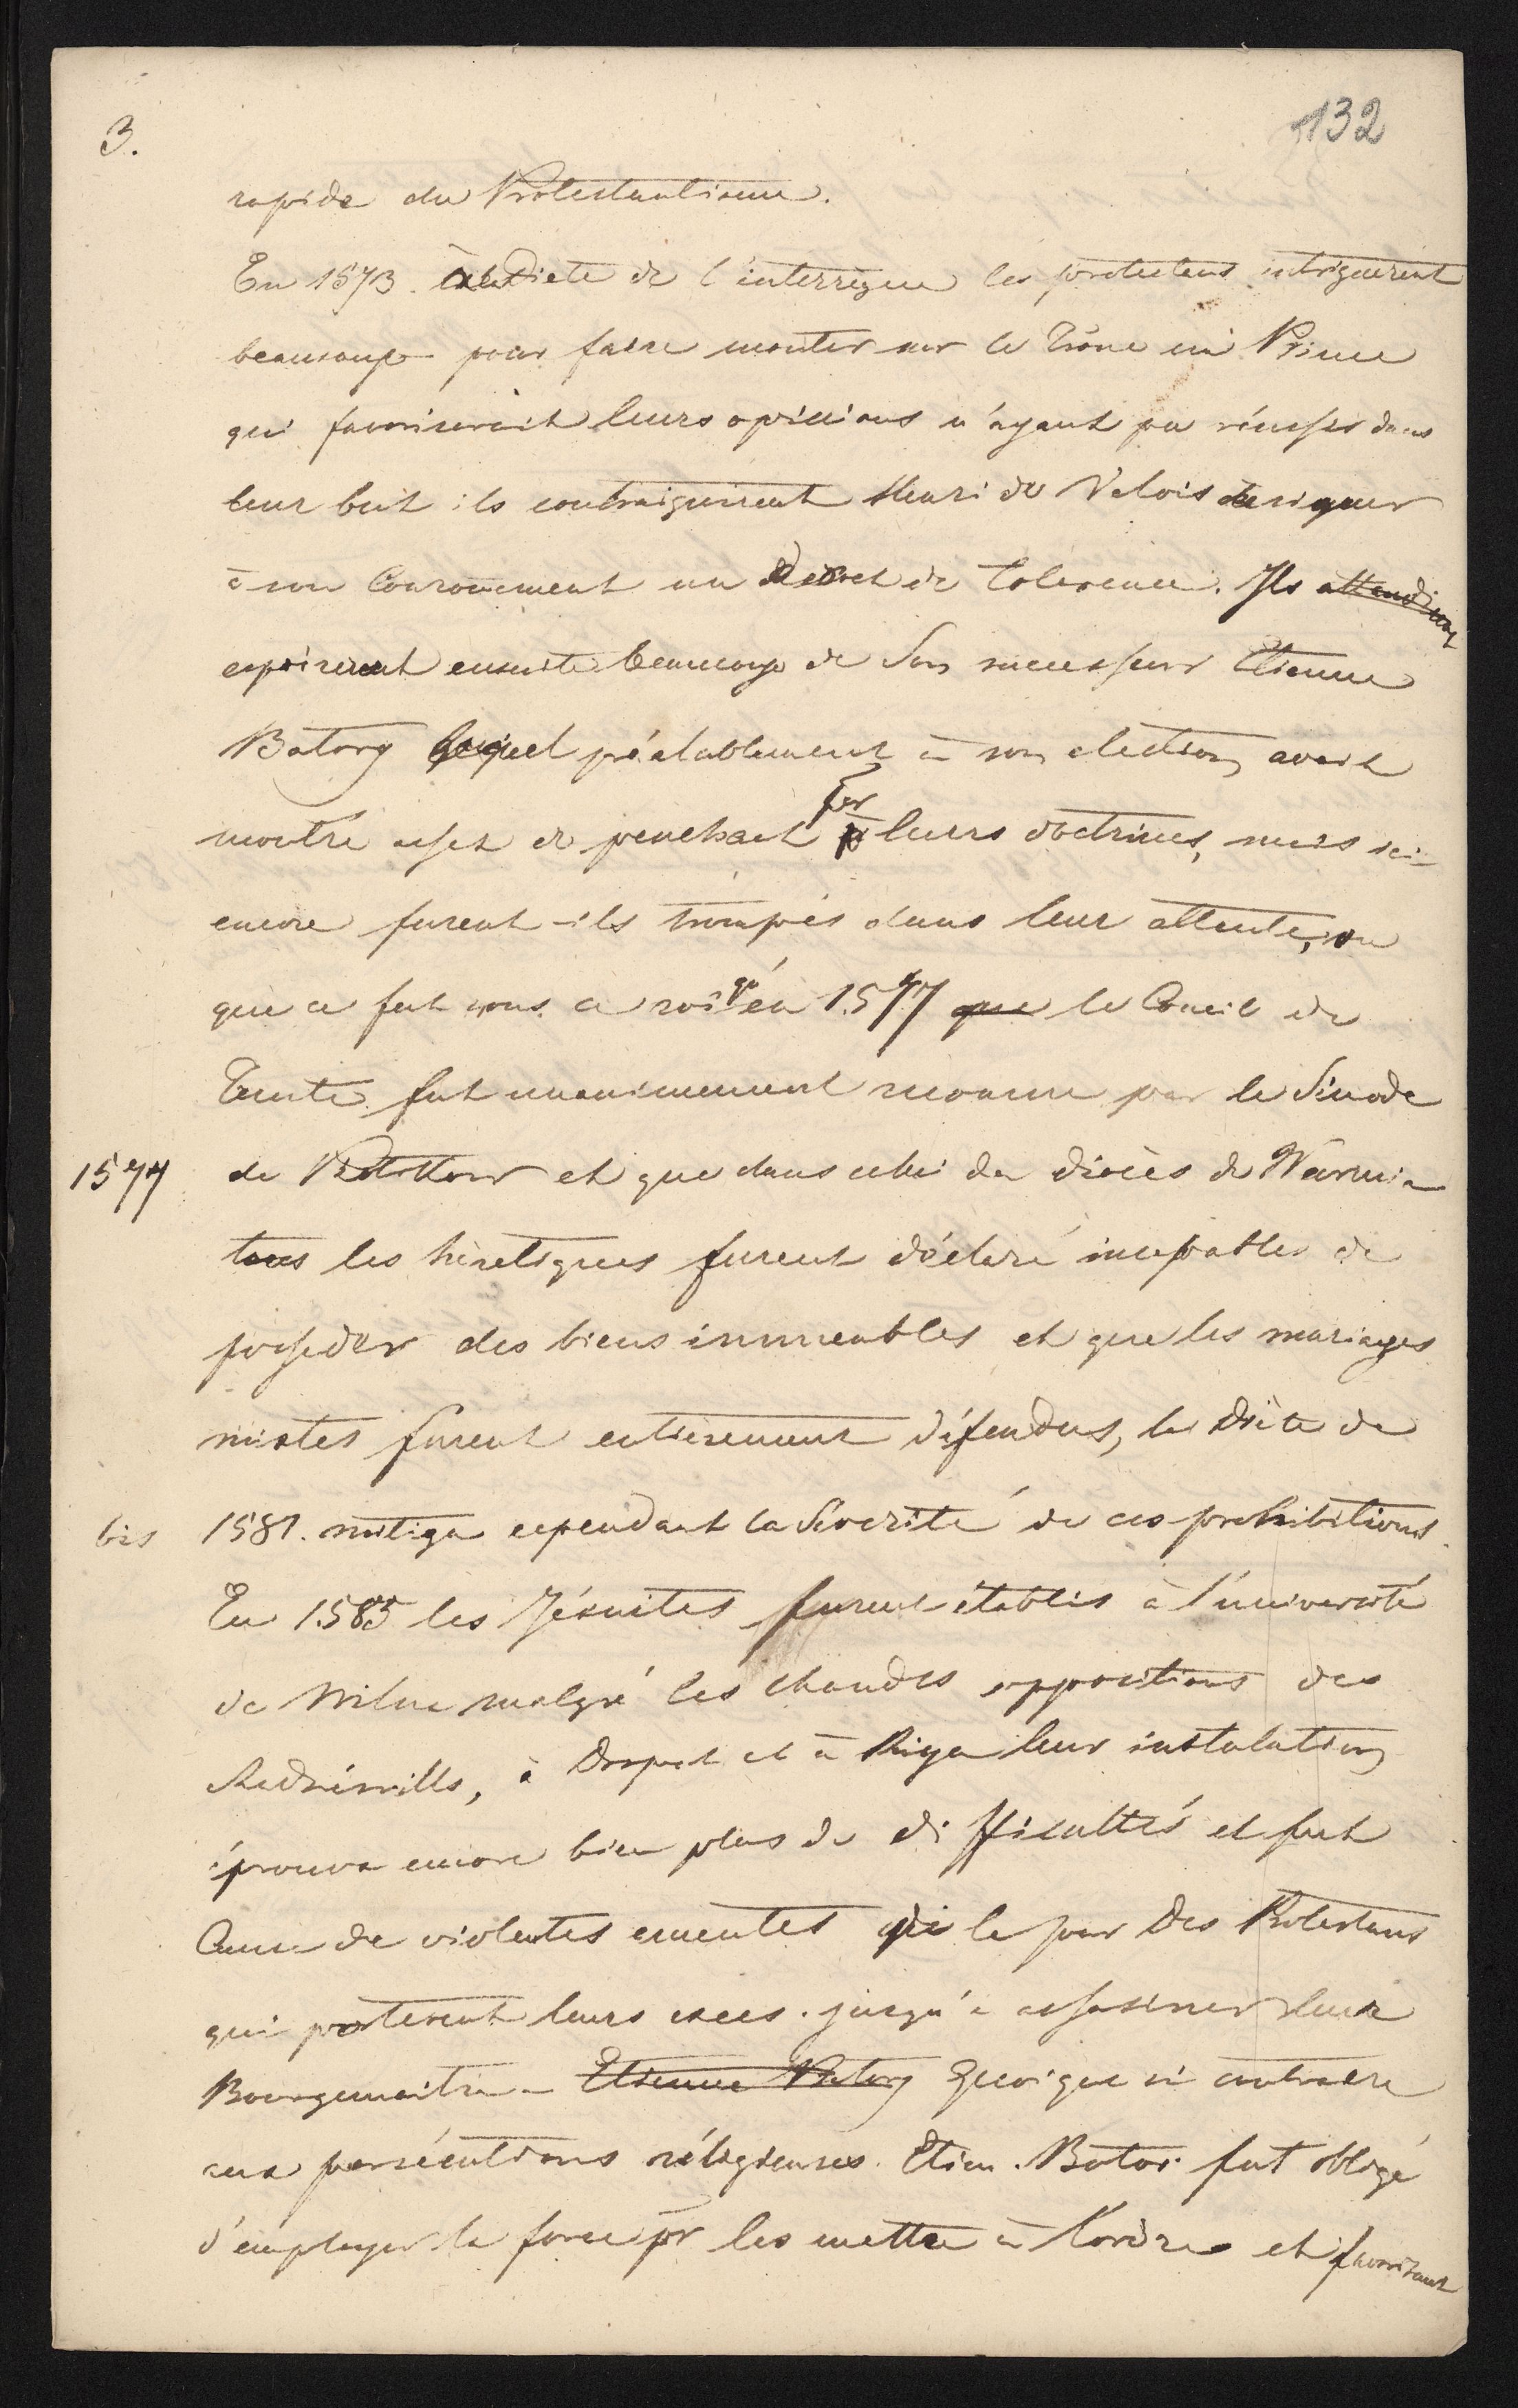 3.
132
rapide du Protestantisme.
En 1573. à la Diete de l'interrègne les protestans intriguerent
beaucoup pour faire monter sur le Trône un Prince
qui favoriserait leurs opinions n'ayant pu réussir dans
leur but ils contraignirent Henri de Valois de signer
à son Couronnement un Décret de tolerence. Ils attendirent
espoirerent ensuite beaucoup de son successeur Etienne
Batory lequel préalablement à son election avait
montré assez de penchant pr leurs doctrines, mais ici
encore furent-ils trompés dans leur attente,
que ce fut sous ce roi qu'en 1577 que le Concil de
Trente fut unanimement reconnu par le Sinode
1577 de Piotrkow et que dans celui du diocès de Warmia
tous les hérétiques furent déclaré incapables de
posseder des biens immeubles et que les mariages
mixtes furent entierement défendus, la Diète de
bis 1581. mitiga cependant la Séverité de ces prohibitions.
En 1585 les Jésuites furent établis à l'université
de Wilna malgré les chaudes oppositions des
Radziwills, à Dorpat et à Riga leur instalation
éprouva encore bien plus de difficultés et fut
Cause de violentes emeutes de la par des Protestans
qui porterent leurs exces. jusqu'à assasiner leur
Bourgemaitre - Etienne Batory Quoique si contraire
aux persécutions réligieuses. Etien. Bator fut obligé
d'employer la force pr les mettre à l'ordre et favorisant